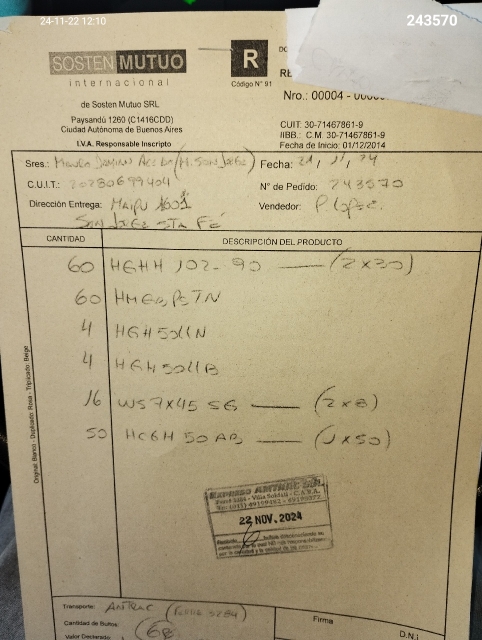 24-11-22 12:10
243570
SOSTEN MUTUO
internacional
R
Código N° 91
Nro.: 00004 -
de Sosten Mutuo SRL
Paysandú 1260 (C1416CDD)
Ciudad Autónoma de Buenos Aires
I.V.A. Responsable Inscripto
CUIT: 30-71467861-9
IIBB.: C.M. 30-71467861-9
Fecha de Inicio: 01/12/2014
Sres.:
Fecha: 21, 11, 24
C.U.I.T.: 20280699404
N° de Pedido: 243570
Dirección Entrega: Maipu 1601
Vendedor: P Lopez.
San Jorge Sta Fé
CANTIDAD
DESCRIPCIÓN DEL PRODUCTO
60 HGHH 102-90 — (2x30)
60
4 HGH50UN
4 HGH50UB
16 WS7x45 SG — (2x8)
50 HCGH 50 AB — (1x50)
Original: Blanco - Duplicado: Rosa - Triplicado: Beige
EXPRESO AMTRAC SRL
22 NOV. 2024
Transporte: AMTRAC
Cantidad de Bultos: 68
Valor Declarado
Firma
D.N.I